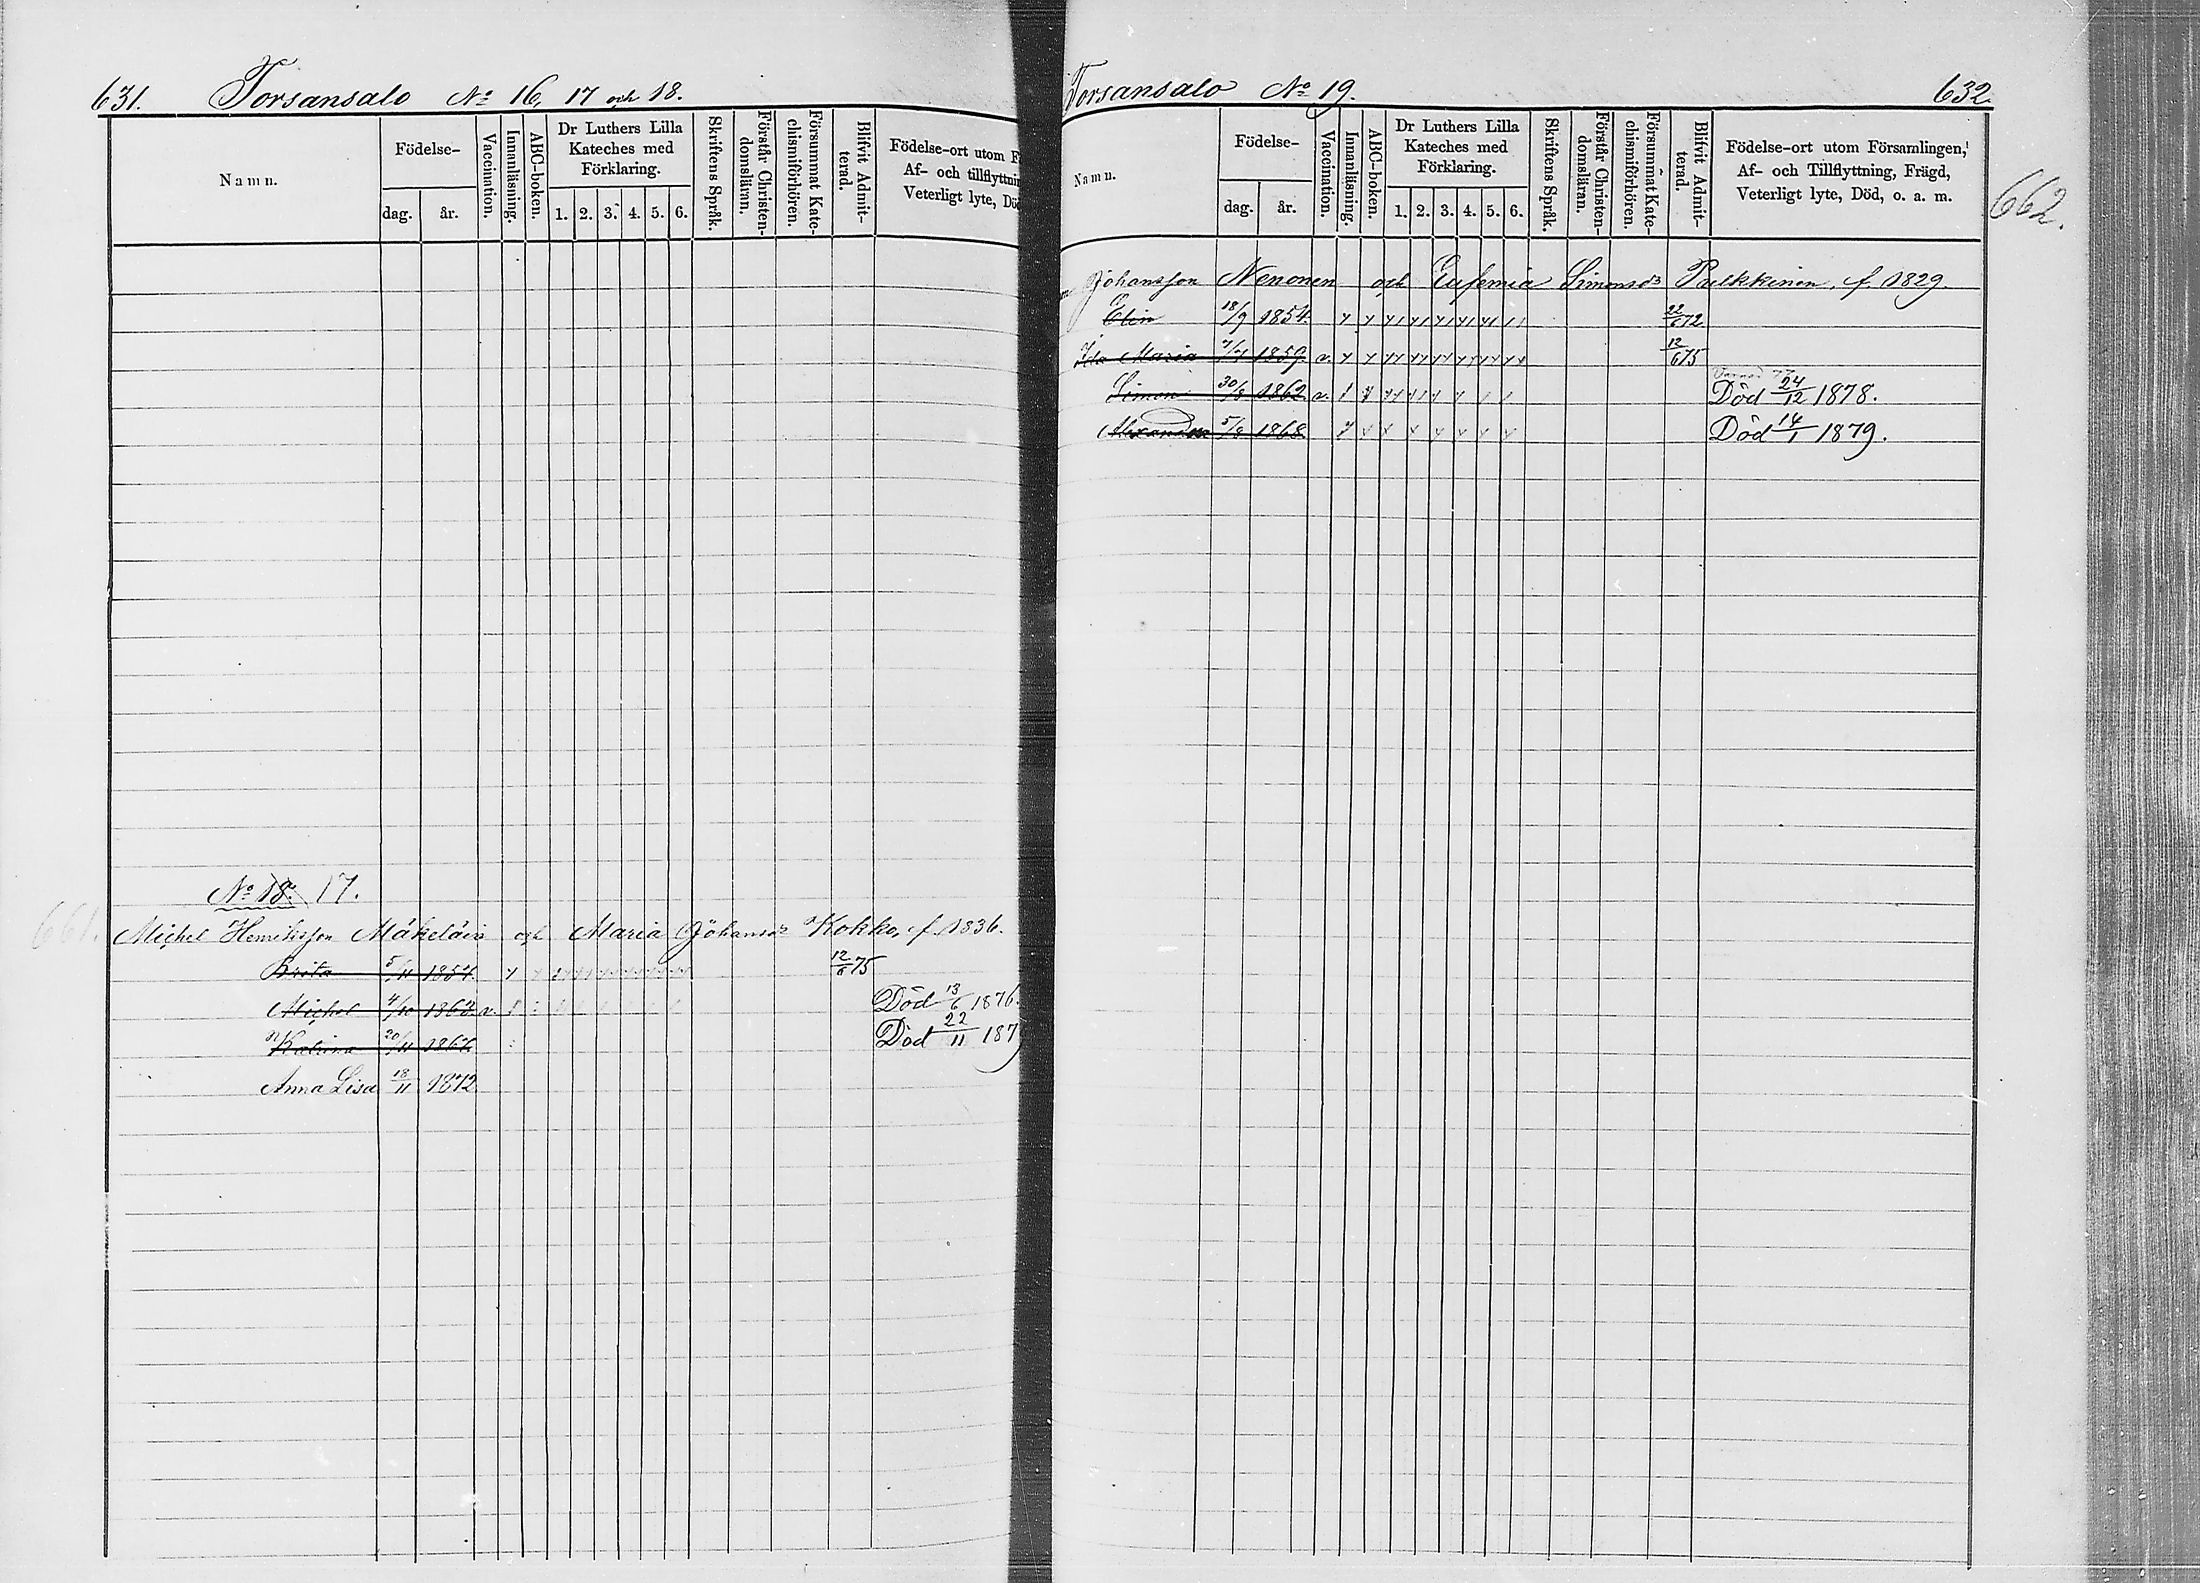 631. Torsansalo No 16, 17 och 18.
Namn.
Födelse-
dag. år.
Vaccination.
Innanläsning.
ABC-boken.
Dr Luthers Lilla
Kateches med
Förklaring.
1. 2. 3. 4. 5. 6.
Skriftens Språk.
Förstår Christen-
domsläran.
Försummat Kate-
chismiförhören.
Blifvit Admit-
terad.
Födelse-ort utom F
Af- och tillflyttnin
Veterligt lyte, Dö
No 18. 17.
661.
Michel Henriksson Mäkeläin och Maria Johansdr Kokko, f. 1836.
Brita 5/11 1854 12/6 75
Michel 4/10 1863 v. Död 13/6 1876.
Katrina 20/11 1867 Död 22/11 187
Anna Lisa 18/11 1872
Torsansalo No 19. 632.
Namn.
Födelse-
dag. år.
Vaccination.
Innanläsning.
ABC-boken.
Dr Luthers Lilla
Kateches med
Förklaring.
1. 2. 3. 4. 5. 6.
Skriftens Språk.
Förstår Christen-
domsläran.
Försummat Kate-
chismiförhören.
Blifvit Admit-
terad.
Födelse-ort utom Församlingen,
Af- och Tillflyttning, Frägd,
Veterligt lyte, Död, o. a. m.
662.
Johansson Nenonen och Eufemia Simonsdr Pulkkinen, f. 1829.
Elin 18/9 1854. 22/6 72
Ida Maria 7/7 1859. v. 12/6 75
Simon 30/8 1862 v. Död 24/12 1878.
Alexandra 5/8 1868 Död 14/1 1879.